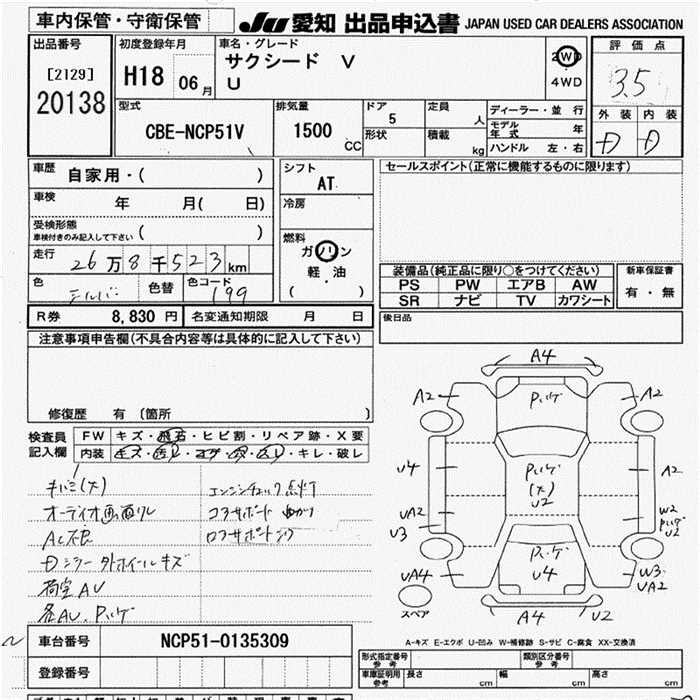 車内保管・守衛保管
JU 愛知 出品申込書 JAPAN USED CAR DEALERS ASSOCIATION
出品番号
[2129]
20138
初度登録年月
H18 06月
車名・グレード
サクシード V
U
2WD
4WD
評価点
3.5
外装 内装
D D
型式
CBE-NCP51V
排気量
1500 CC
ドア
5
定員
人
形状
積載
kg
ディーラー・並行
モデル年式 年
ハンドル 左・右
車歴 自家用・( )
車検 年 月( 日)
受検形態
車検付きのみ記入して下さい ( )
走行 26万8千523km
色 シルバー 色替 色コード 199
シフト
AT
冷房
燃料
ガソリン
軽・油
( )
セールスポイント(正常に機能するものに限ります)
装備品(純正品に限り○をつけてください)
PS PW エアB AW
SR ナビ TV カワシート
新車保証書
有・無
R券 8,830円 名変通知期限 月 日
後日品
注意事項申告欄(不具合内容等は具体的に記入して下さい)
修復歴 有 〔箇所 〕
検査員
記入欄
FW キズ・飛石・ヒビ割・リペア跡・X要
内装 キズ・汚れ・コゲ・穴・スレ・キレ・破レ
キバミ(大)
オーディオ画面ワレ
AC不良
Dミラー外ホイールキズ
荷室AU
各AU、Pハゲ
エンジンチェック点灯
コアサポート曲がり
A4
A2
A2
Pハゲ
U4
Pハゲ
(大)
U2
A2
UA2
U3
W2
Pハゲ
U2
Pハゲ
U4
UA4
W3
UA2
スペア
A4
U2
A-キズ E-エクボ U-凹み W-補修跡 S-サビ C-腐食 XX-交換済
車台番号 NCP51-0135309
登録番号
形式指定番号
参考
類別区分番号
参考
車庫証明用
参考
長さ cm 幅 cm 高さ cm